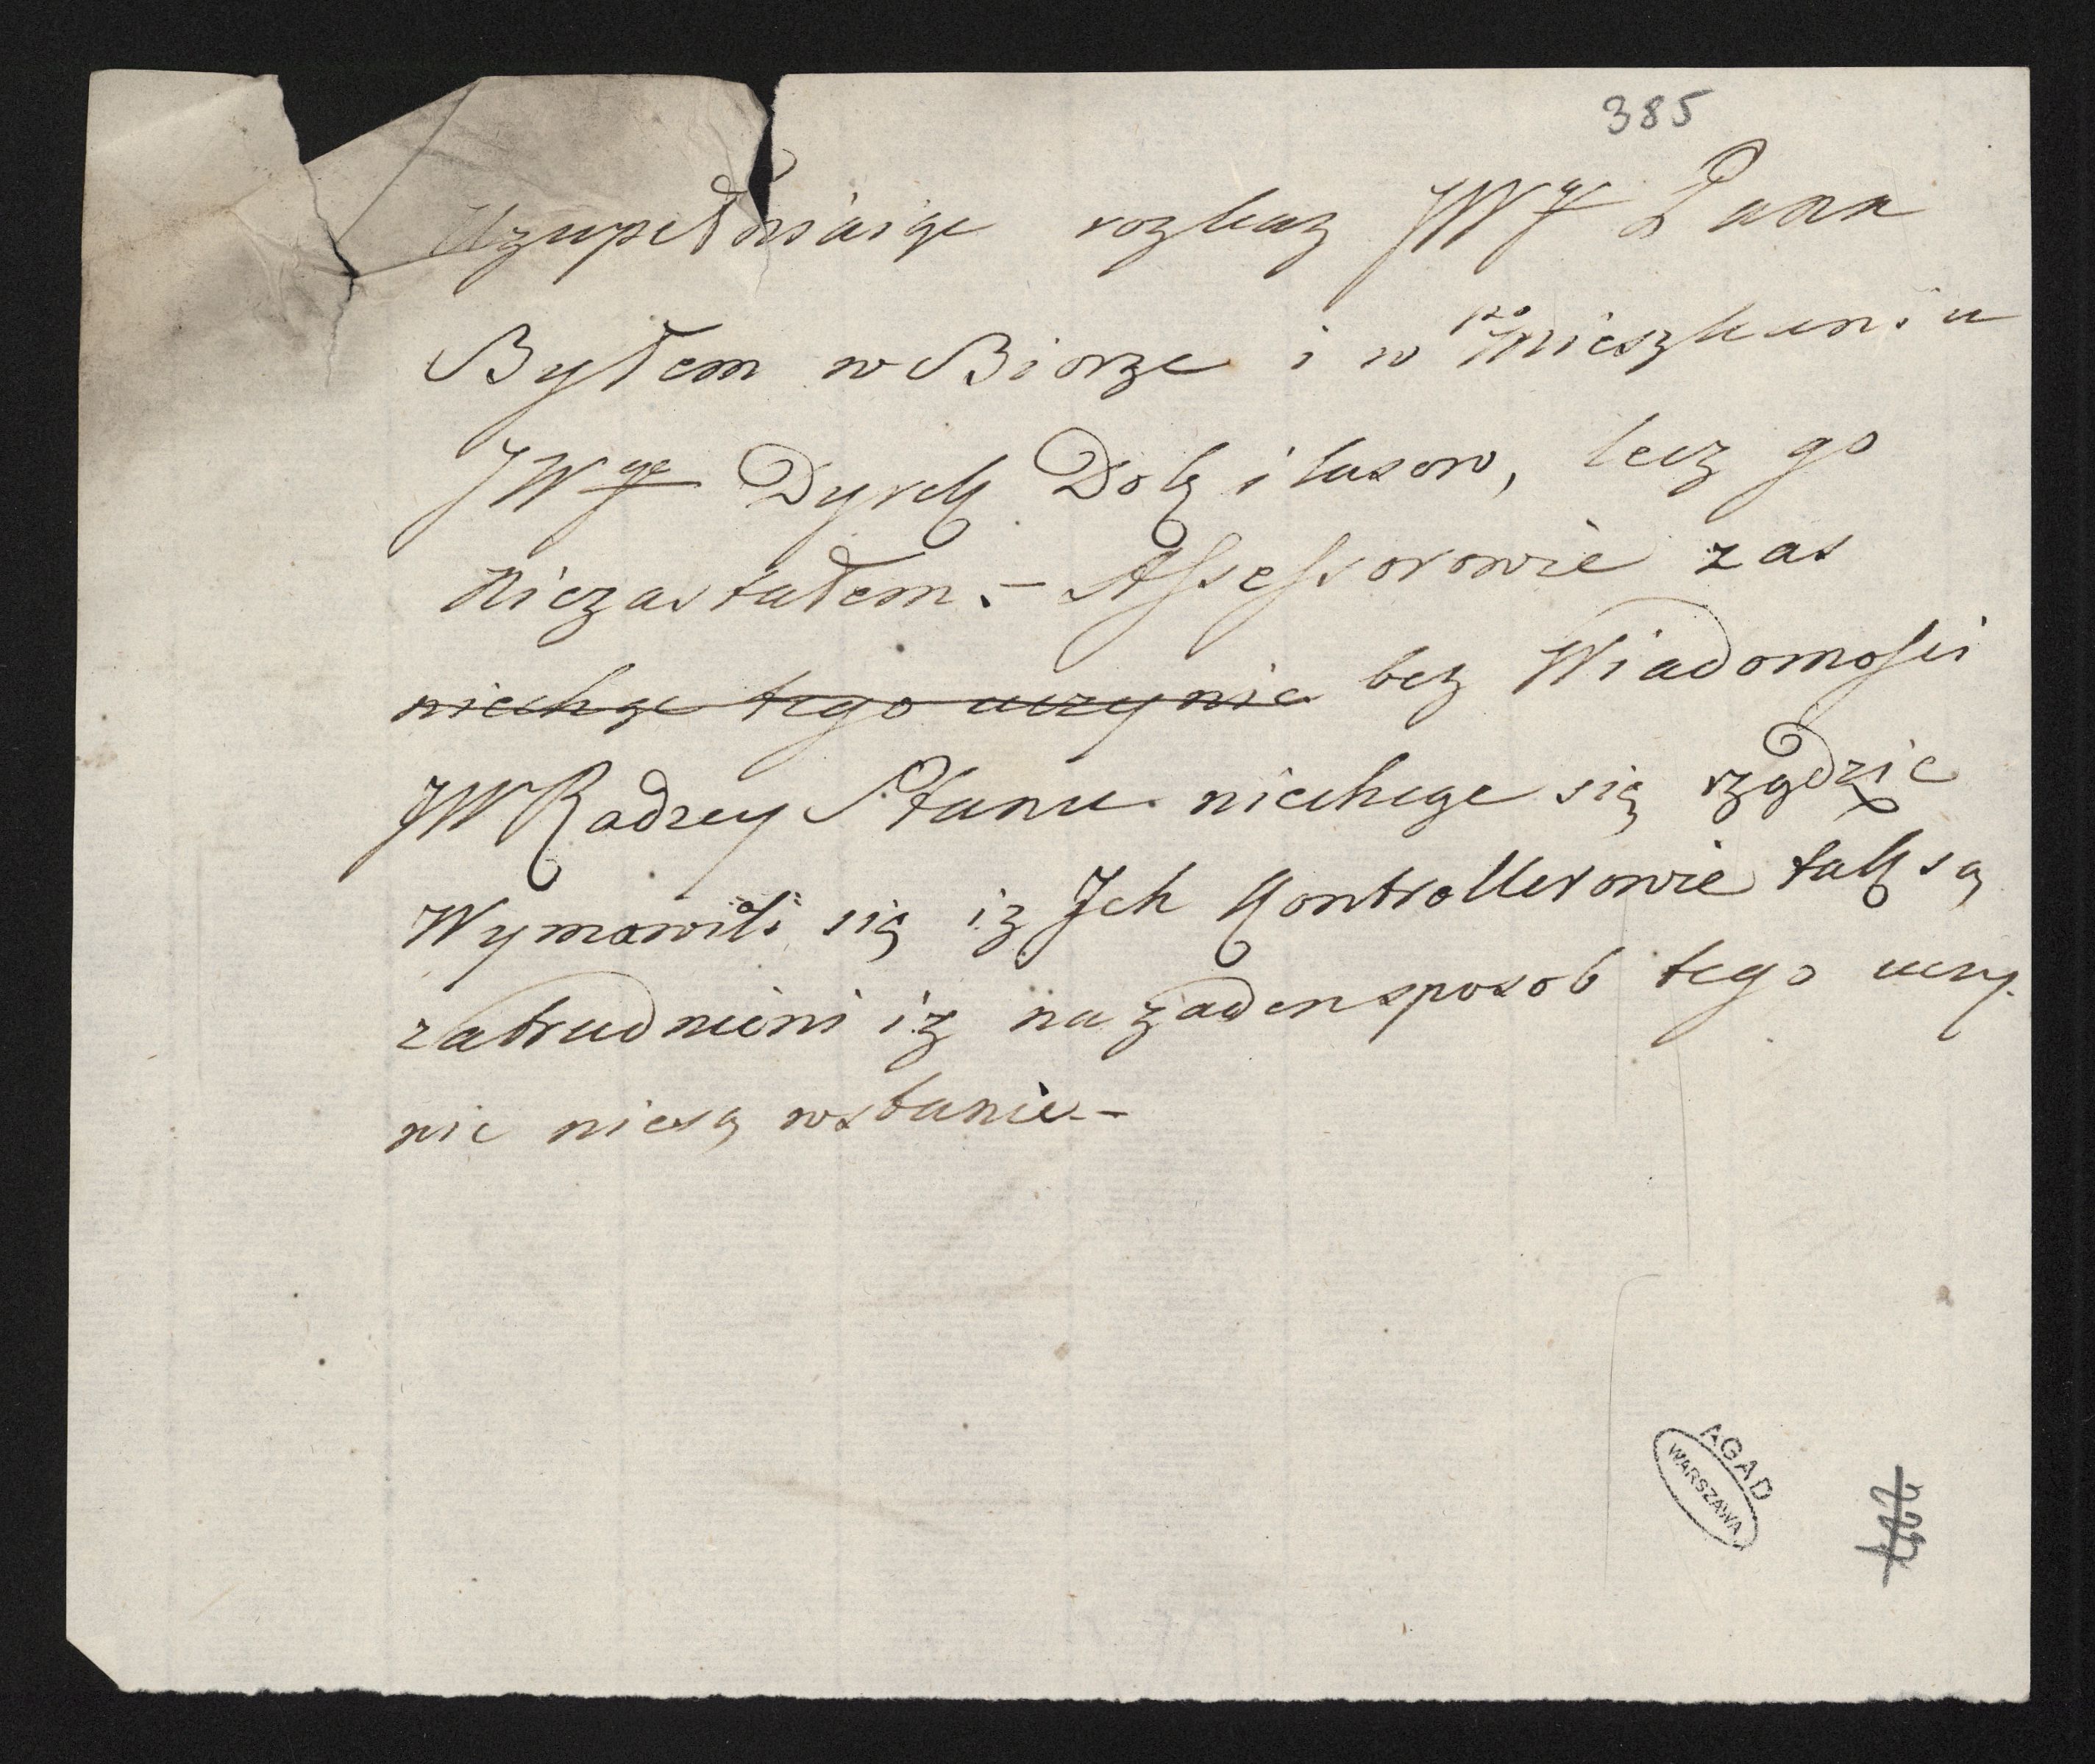 385
Uzupełniaiąc rozkaz JWgo Pana
Byłem w Biorze i w pomieszkaniu
JWgo Dyrek Dobr i lasow, lecz go
niezastałem. – Assessorowie zas
niechcąc tego uczynic bez Wiadomosci
JW Radzcy Stanu niechcąc się zgodzic
Wymowili się iz Jch Kontrollerowie tak są
zatrudnieni iz na zaden sposob tego uczy-
nic niesą wstanie –
AGAD
WARSZAWA